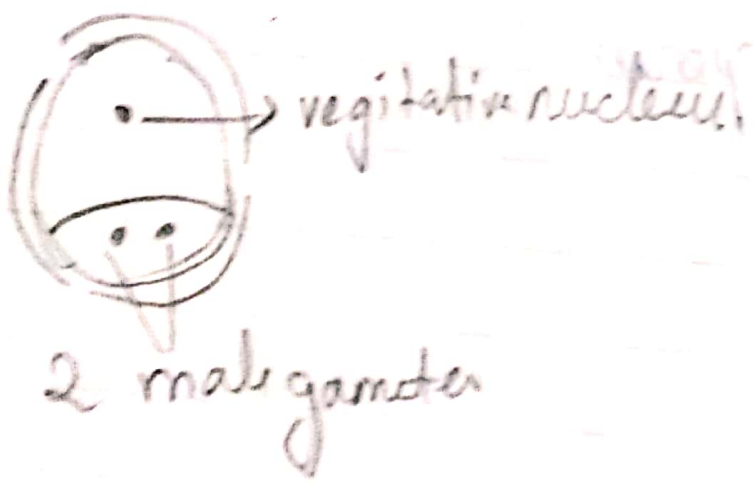 vegitative nucleus.
2 male gametes